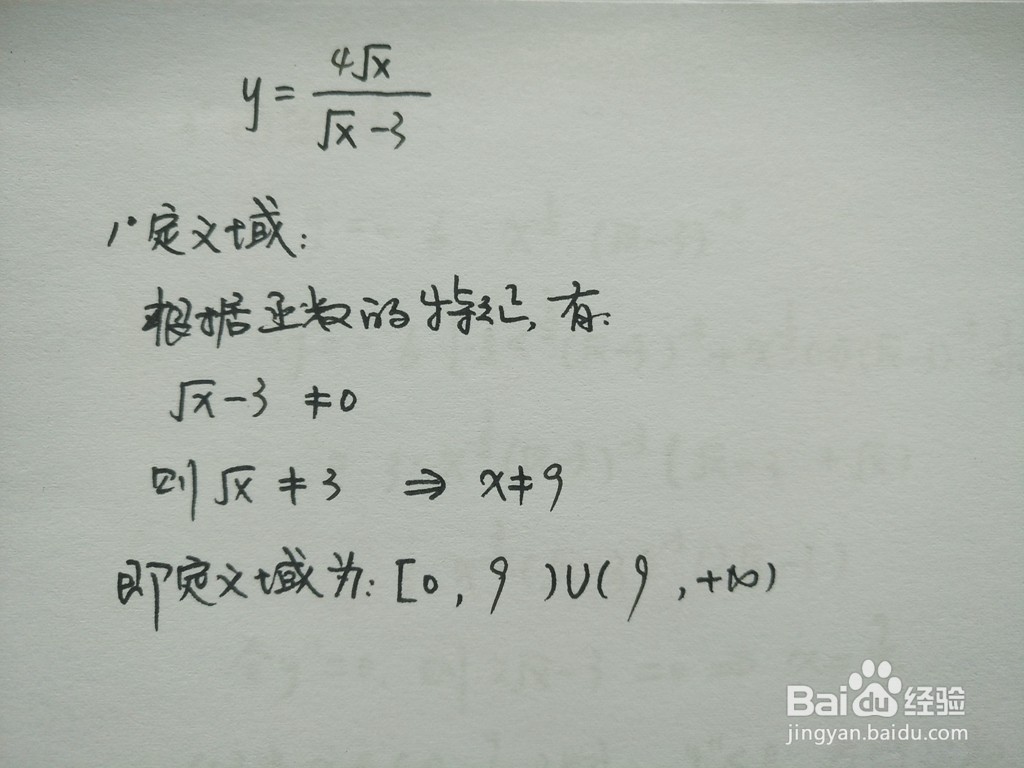 y = 4√x / (√x - 3)
1° 定义域:
根据函数的特征, 有:
√x - 3 ≠ 0
则 √x ≠ 3 ⇒ x ≠ 9
即定义域为: [0, 9)∪(9, +∞)
Bai du 经验
jingyan.baidu.com